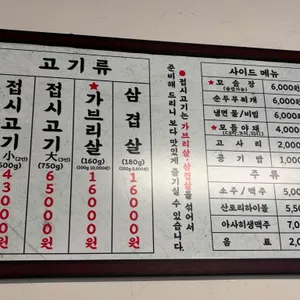 고기류
접시고기
小(2인)
(500g)
43000원
접시고기
大(3인)
(750g)
65000원
★가브리살
(160g)
16000원
삼겹살
(180g)
16000원
●접시고기는 가브리살, 삼겹살을 섞어서
준비해 드리니 보다 맛있게 즐기실 수 있습니다.
사이드 메뉴
★모슬장 6,000원
순두부찌개 6,000
냉면 물/비빔 6,000
★모듬야채 4,000
고사리 2,000
공기밥 1,000
주류
소주/맥주 5,000
산토리하이볼 5,500
아사히생맥주 7,0
음료 2,0